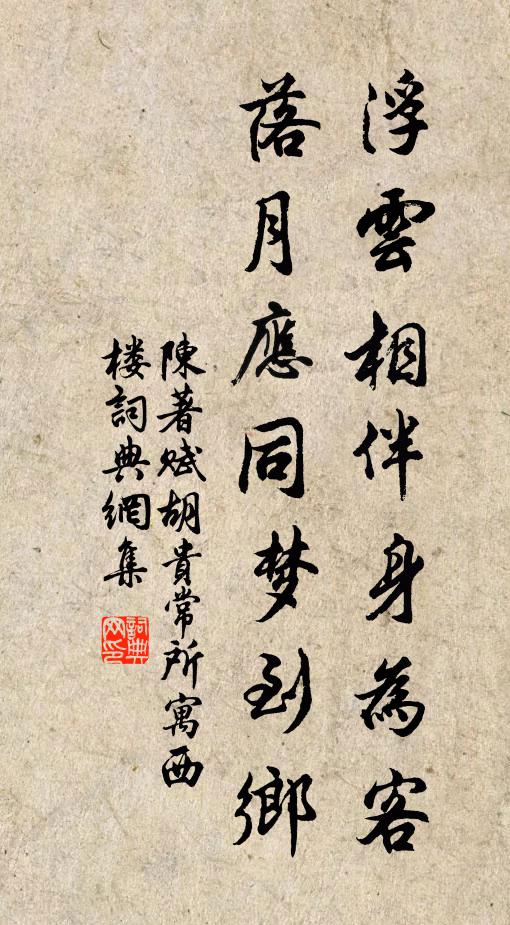 浮雲相伴身為客
落月應同梦到鄉
陳著賦胡貴常所寓西
楼詞典網集
詞典網印